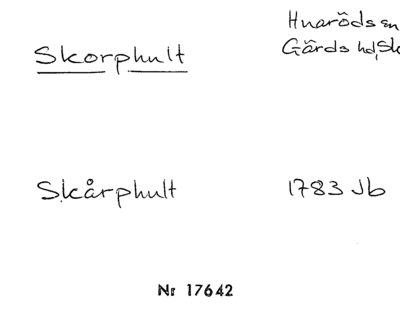 Skorphult
Huaröds sn
Gärds hd, Sk
Skårphult
1783 Jb
Nr 17642